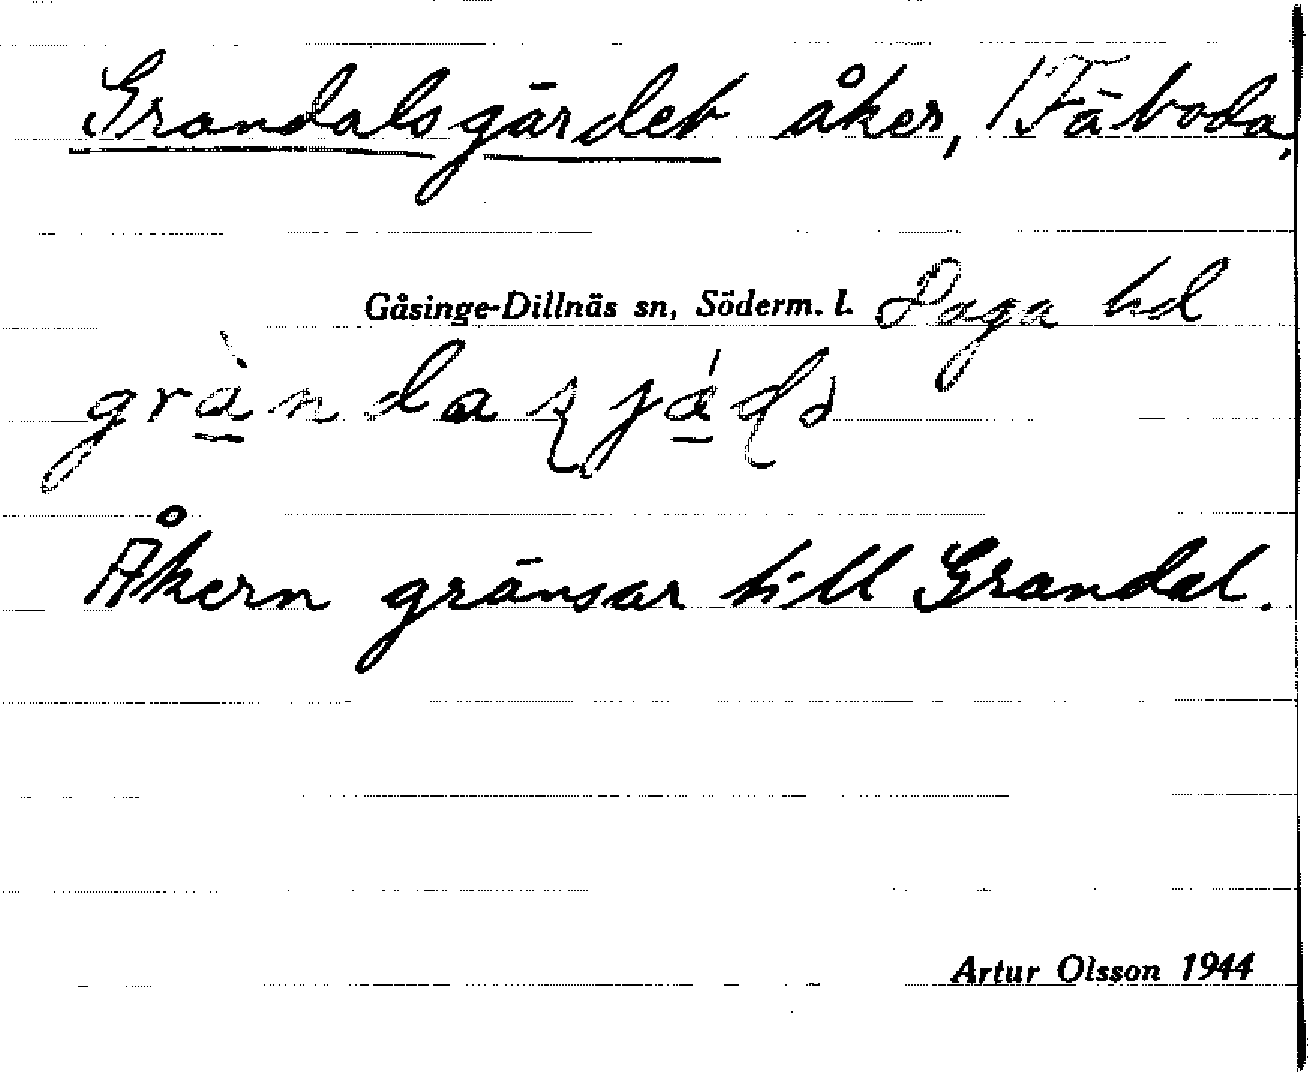 Grandalsgärdet åker, 1 Fäboda.
Gåsinge-Dillnäs sn, Söderm. l. Daga hd
Åkern gränsar till Grandal.
Artur Olsson 1944